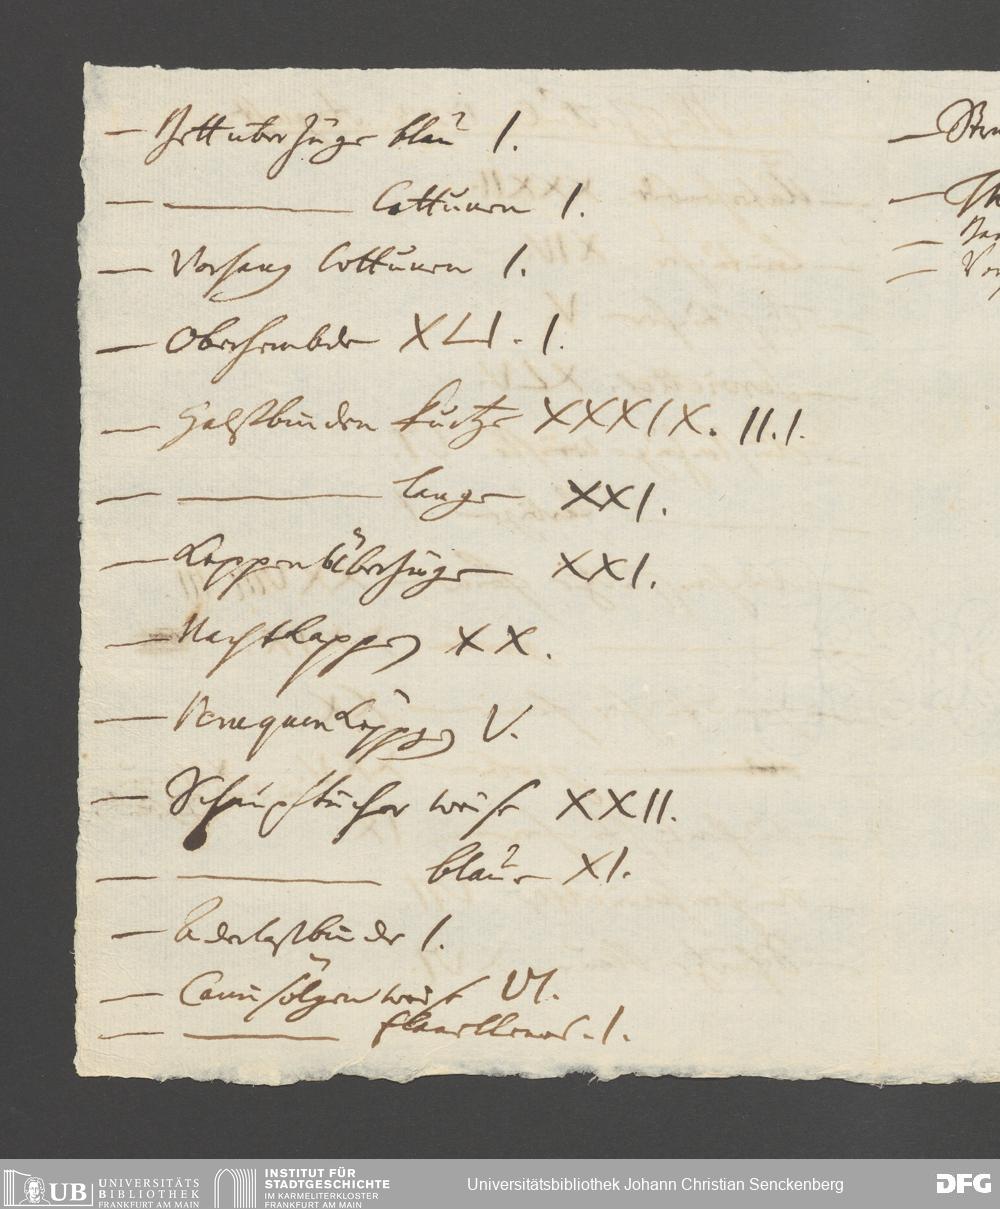 — Bettüberzüge blau I.
— ——— Cottunen I.
— Vorhang Cottunen I.
— Oberhembde XLI. I.
— Halsbinden kurtze XXXIX. II. I.
— ——— lange XXI.
— Kappenüberzüge XXI.
— Nachtkappen XX.
— Peruquenkäppgen V.
— Schnupftücher weise XXII.
— ——— blaue XI.
— Aderlaßbinde I.
— Camisölgen weise VI.
— ——— flanellenes. I.
UB UNIVERSITÄTS
BIBLIOTHEK
FRANKFURT AM MAIN
INSTITUT FÜR
STADTGESCHICHTE
IM KARMELITERKLOSTER
FRANKFURT AM MAIN
Universitätsbibliothek Johann Christian Senckenberg
DFG